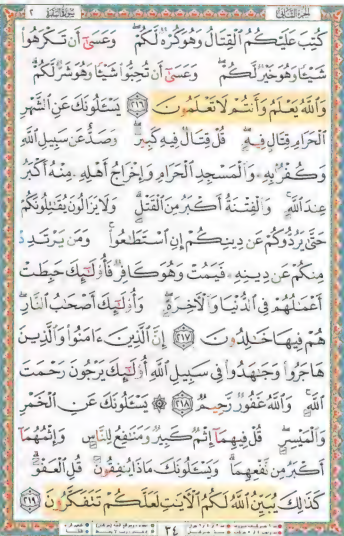 الجزء الثاني سورة البقرة ٢
كُتِبَ عَلَيْكُمُ ٱلْقِتَالُ وَهُوَ كُرْهٌ لَّكُمْ ۖ وَعَسَىٰٓ أَن تَكْرَهُوا۟
شَيْـًٔا وَهُوَ خَيْرٌ لَّكُمْ ۖ وَعَسَىٰٓ أَن تُحِبُّوا۟ شَيْـًٔا وَهُوَ شَرٌّ لَّكُمْ ۗ
وَٱللَّهُ يَعْلَمُ وَأَنتُمْ لَا تَعْلَمُونَ ٢١٦ يَسْـَٔلُونَكَ عَنِ ٱلشَّهْرِ
ٱلْحَرَامِ قِتَالٍ فِيهِ ۖ قُلْ قِتَالٌ فِيهِ كَبِيرٌ ۖ وَصَدٌّ عَن سَبِيلِ ٱللَّهِ
وَكُفْرٌۢ بِهِۦ وَٱلْمَسْجِدِ ٱلْحَرَامِ وَإِخْرَاجُ أَهْلِهِۦ مِنْهُ أَكْبَرُ
عِندَ ٱللَّهِ ۚ وَٱلْفِتْنَةُ أَكْبَرُ مِنَ ٱلْقَتْلِ ۗ وَلَا يَزَالُونَ يُقَـٰتِلُونَكُمْ
حَتَّىٰ يَرُدُّوكُمْ عَن دِينِكُمْ إِنِ ٱسْتَطَـٰعُوا۟ ۚ وَمَن يَرْتَدِدْ
مِنكُمْ عَن دِينِهِۦ فَيَمُتْ وَهُوَ كَافِرٌ فَأُو۟لَـٰٓئِكَ حَبِطَتْ
أَعْمَـٰلُهُمْ فِى ٱلدُّنْيَا وَٱلْـَٔاخِرَةِ ۖ وَأُو۟لَـٰٓئِكَ أَصْحَـٰبُ ٱلنَّارِ ۖ
هُمْ فِيهَا خَـٰلِدُونَ ٢١٧ إِنَّ ٱلَّذِينَ ءَامَنُوا۟ وَٱلَّذِينَ
هَاجَرُوا۟ وَجَـٰهَدُوا۟ فِى سَبِيلِ ٱللَّهِ أُو۟لَـٰٓئِكَ يَرْجُونَ رَحْمَتَ
ٱللَّهِ ۚ وَٱللَّهُ غَفُورٌ رَّحِيمٌ ٢١٨ ۞ يَسْـَٔلُونَكَ عَنِ ٱلْخَمْرِ
وَٱلْمَيْسِرِ ۖ قُلْ فِيهِمَآ إِثْمٌ كَبِيرٌ وَمَنَـٰفِعُ لِلنَّاسِ وَإِثْمُهُمَآ
أَكْبَرُ مِن نَّفْعِهِمَا ۗ وَيَسْـَٔلُونَكَ مَاذَا يُنفِقُونَ قُلِ ٱلْعَفْوَ ۗ
كَذَٰلِكَ يُبَيِّنُ ٱللَّهُ لَكُمُ ٱلْـَٔايَـٰتِ لَعَلَّكُمْ تَتَفَكَّرُونَ ٢١٩
٣٤